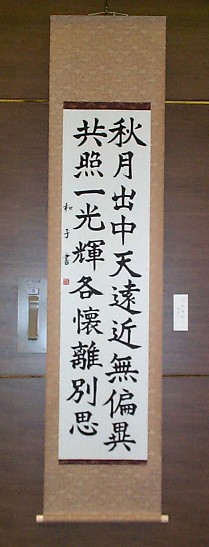 秋月出中天遠近無偏異
共照一光輝各懷離別思
和子書